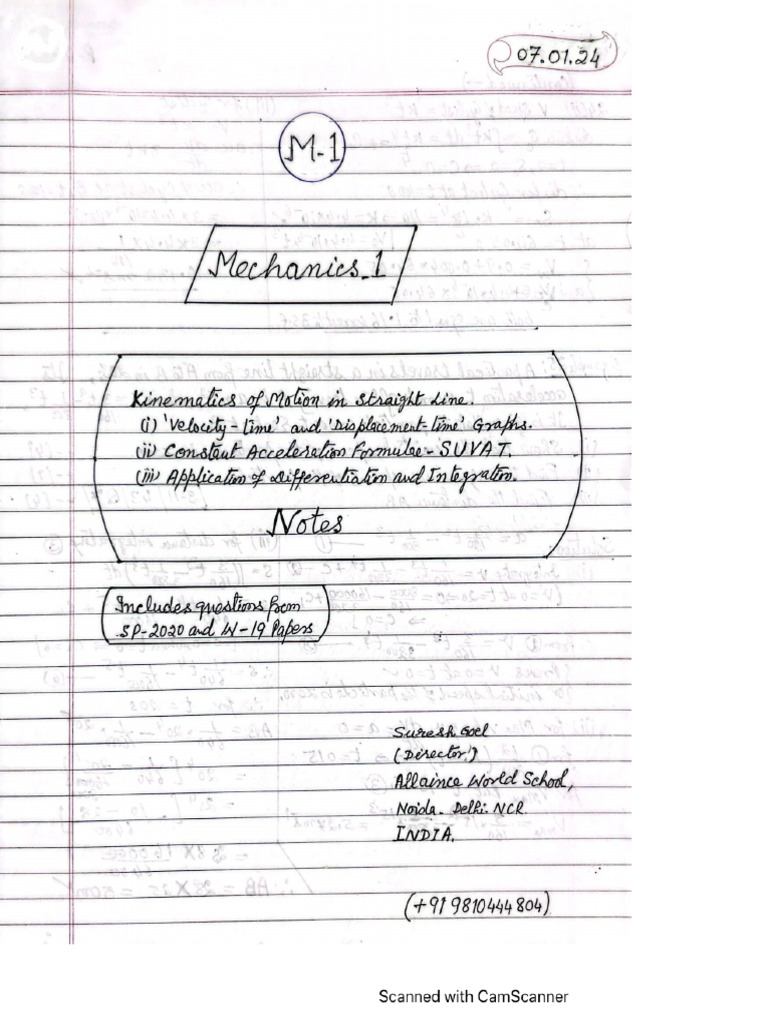 07.01.24
M-1
Mechanics-1
Kinematics of Motion in straight Line.
(i) 'Velocity-time' and 'Displacement-time' Graphs.
(ii) Constant Acceleration Formulae - SUVAT.
(iii) Application of Differentiation and Integration.
Notes
Includes questions from
SP-2020 and W-19 Papers
Suresh Goel
(Director)
Allaince World School,
Noida. Delhi. NCR
INDIA.
(+91 9810444804)
Scanned with CamScanner